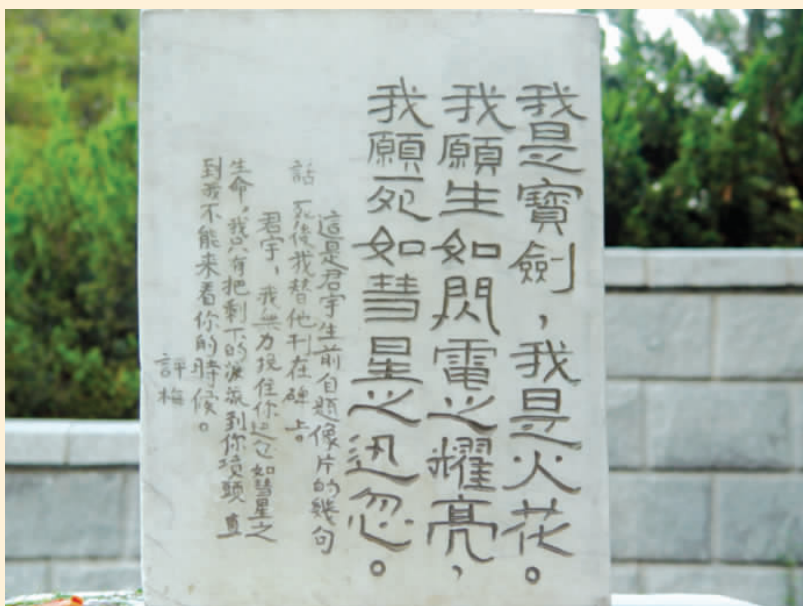 我是寶劍，我是火花。
我願生如閃電之耀亮，
我願死如彗星之迅忽。
這是君宇生前自題像片的幾句
話 死後我替他刊在碑上。
君宇，我無力挽住你迅忽如彗星之
生命，我只有把剩下的淚流到你墳頭 直
到我不能来看你的時候。
評梅